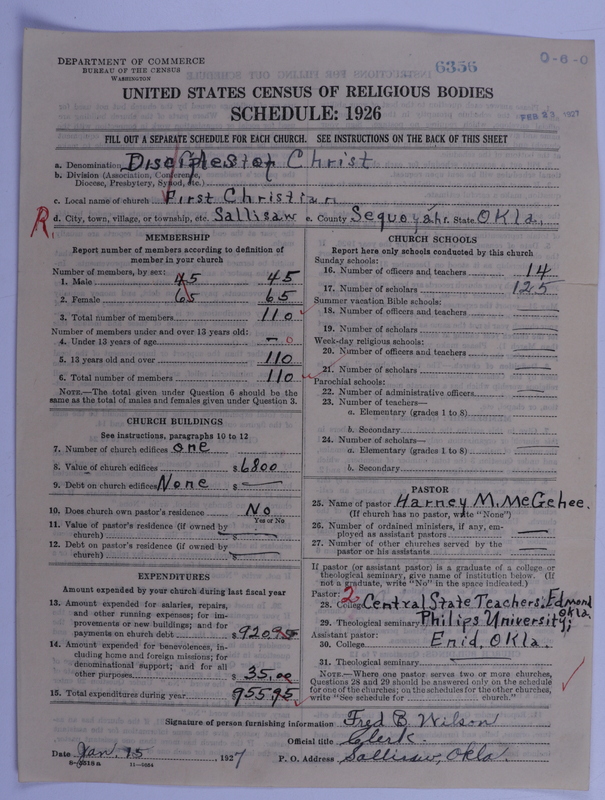 DEPARTMENT OF COMMERCE
BUREAU OF THE CENSUS
WASHINGTON
6356
0-6-0
UNITED STATES CENSUS OF RELIGIOUS BODIES
SCHEDULE: 1926
FEB 23, 1927
FILL OUT A SEPARATE SCHEDULE FOR EACH CHURCH. SEE INSTRUCTIONS ON THE BACK OF THIS SHEET
a. Denomination Disciples of Christ
b. Division (Association, Conference, Diocese, Presbytery, Synod, etc.)
c. Local name of church First Christian
R. d. City, town, village, or township, etc. Sallisaw e. County Sequoyah f. State Okla.
MEMBERSHIP
Report number of members according to definition of member in your church
Number of members, by sex:
1. Male 45 45
2. Female 65 65
3. Total number of members 110
Number of members under and over 13 years old:
4. Under 13 years of age — 0
5. 13 years old and over 110
6. Total number of members 110
NOTE.—The total given under Question 6 should be the same as the total of males and females given under Question 3.
CHURCH BUILDINGS
See instructions, paragraphs 10 to 12
7. Number of church edifices one
8. Value of church edifices $ 6800
9. Debt on church edifices None $ —
10. Does church own pastor's residence? No
Yes or No
11. Value of pastor's residence (if owned by church) $ —
12. Debt on pastor's residence (if owned by church) $ —
EXPENDITURES
Amount expended by your church during last fiscal year
13. Amount expended for salaries, repairs, and other running expenses; for improvements or new buildings; and for payments on church debt $ 920.95
14. Amount expended for benevolences, including home and foreign missions; for denominational support; and for all other purposes $ 35.00
15. Total expenditures during year 955.95
CHURCH SCHOOLS
Report here only schools conducted by this church
Sunday schools:
16. Number of officers and teachers 14
17. Number of scholars 125
Summer vacation Bible schools:
18. Number of officers and teachers —
19. Number of scholars —
Week-day religious schools:
20. Number of officers and teachers —
21. Number of scholars —
Parochial schools:
22. Number of administrative officers —
23. Number of teachers—
a. Elementary (grades 1 to 8)
b. Secondary
24. Number of scholars—
a. Elementary (grades 1 to 8) —
b. Secondary
PASTOR
25. Name of pastor Harney M. McGehee.
(If church has no pastor, write "None")
26. Number of ordained ministers, if any, employed as assistant pastors —
27. Number of other churches served by the pastor or his assistants —
If pastor (or assistant pastor) is a graduate of a college or theological seminary, give name of institution below. (If not a graduate, write "No" in the space indicated.)
Pastor: 2
28. College Central State Teachers, Edmond Okla.
29. Theological seminary Philips University;
Assistant pastor: Enid, Okla.
30. College
31. Theological seminary
NOTE.—Where one pastor serves two or more churches, Questions 28 and 29 should be answered only on the schedule for one of the churches; on the schedules for the other churches, write "See schedule for church."
Signature of person furnishing information Fred B. Wilson
Official title Clerk.
Date Jan. 15, 1927 P. O. Address Sallisaw, Okla.
11—9054